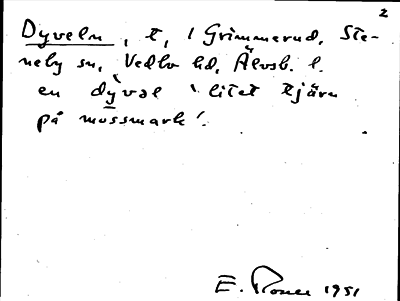 2
Dyveln, t, i Grimmerud, Ste-
neby sn, Vedbo hd, Älvsb. l.
en dỳvəl 'litet tjärn
på mossmark'.
E. 1951